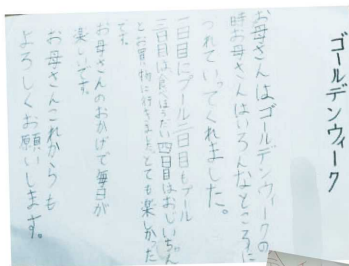 ゴールデンウィーク
お母さんはゴールデンウィークの
時お母さんはいろんなところに
つれていてくれました。
一日目にプール二日目もプール
三日目は食べほうだい四日目はおじいちゃん
とお買物に行きましたとても楽しかった
です。
お母さんのおかげで毎日が
楽しいです。
お母さんこれからも
よろしくお願いします。